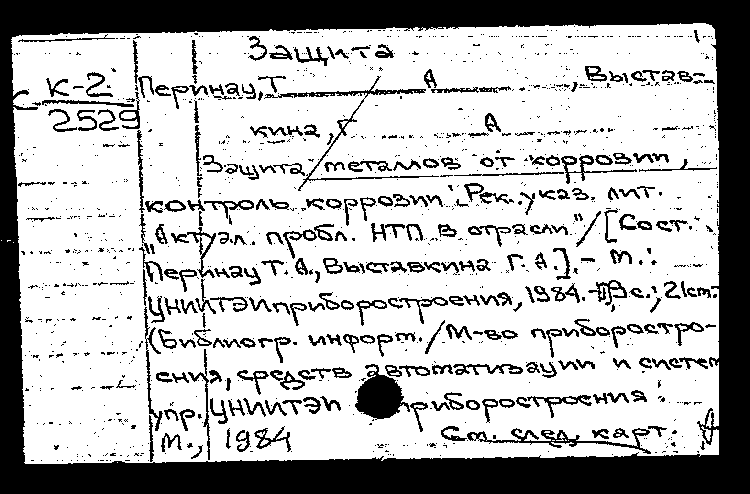 Защита
С К-2
2529
Перинау, Т А , Выстав-
кина, Г А
Защита металлов от коррозии,
контроль коррозии : Рек. указ. лит.
"Актуал. пробл. НТП в отрасли" / [Сост.
Перинау Т. А., Выставкина Г. А.]. - М.:
УНИИТЭИприборостроения, 1984. - с.; 21см.
(Библиогр. информ. / М-во приборостро-
ения, средств автоматизации и систем
упр., УНИИТЭИ приборостроения.
М., 1984
См. след. карт.